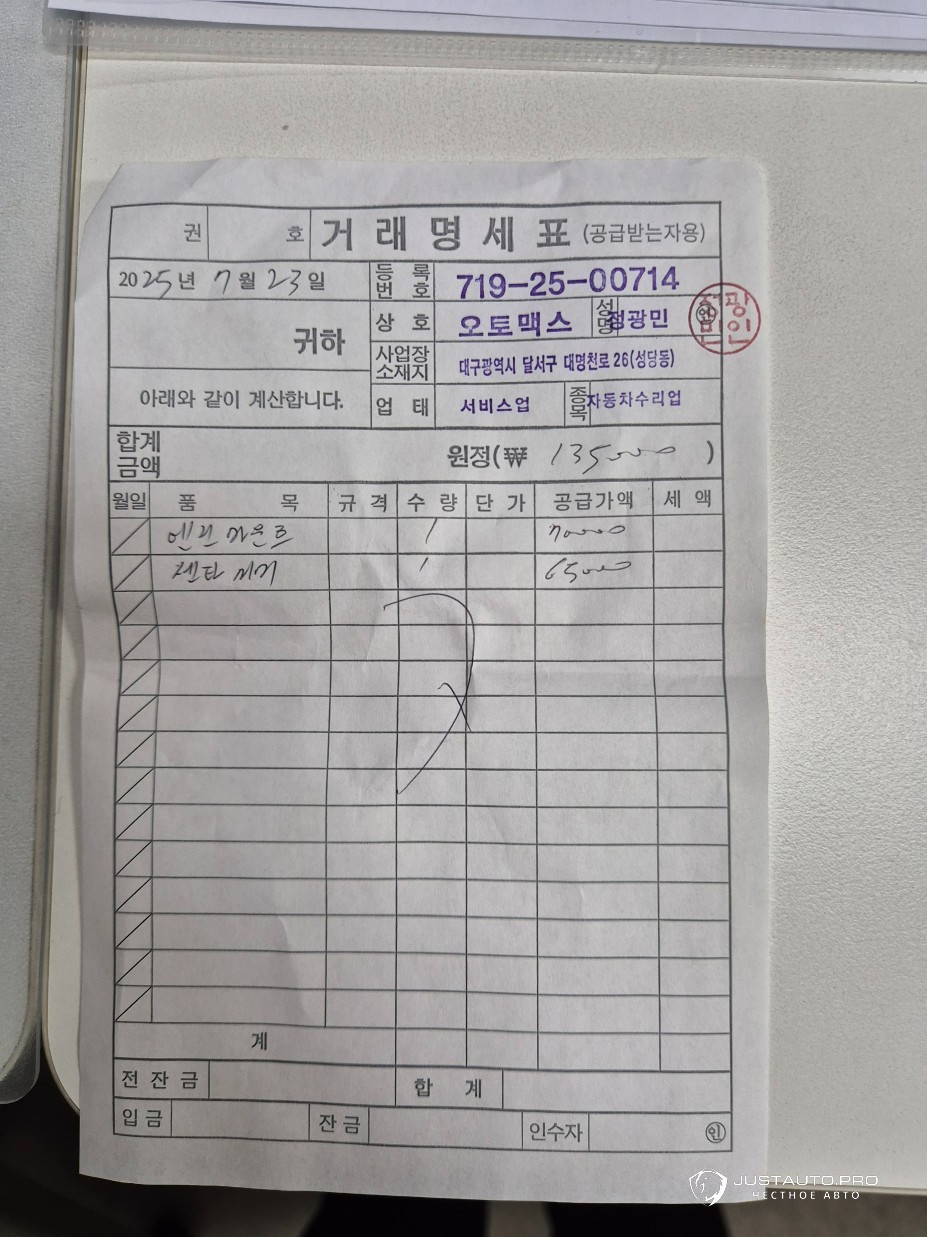 권 호 거래명세표 (공급받는자용)
2025년 7월 23일
등록번호 719-25-00714
귀하
상호 오토맥스 성명 정광민 인
정광민인
사업장소재지 대구광역시 달서구 대명천로 26(성당동)
아래와 같이 계산합니다.
업태 서비스업 종목 자동차수리업
합계금액 원정(₩ 135000 )
월일 품목 규격 수량 단가 공급가액 세액
엔진 마운트 1 70000
젠다 미미 1 65000
계
전잔금 합계
입금 잔금 인수자 인
JUSTAUTO.PRO
ЧЕСТНОЕ АВТО